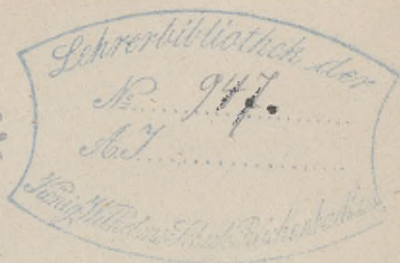 Lehrerbibliothek der
No 947.
A.I.
König Wilhelms-Schule Reichenbach